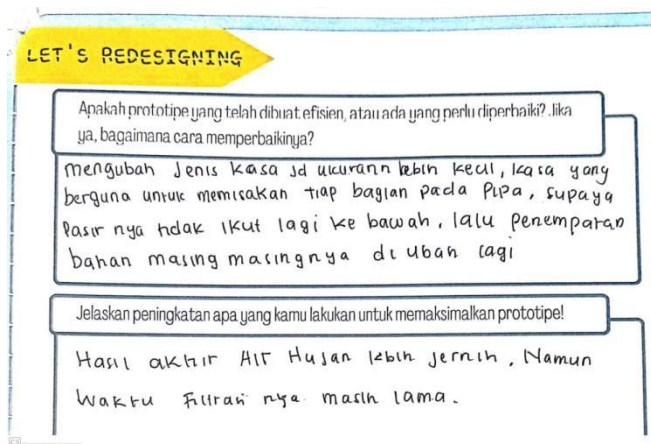 LET'S REDESIGNING
Apakah prototipe yang telah dibuat efisien, atau ada yang perlu diperbaiki? Jika
ya, bagaimana cara memperbaikinya?
mengubah Jenis kasa jd ukurann lebih kecil, kasa yang
berguna untuk memisakan tiap bagian pada Pipa, supaya
Pasir nya tidak ikut lagi ke bawah, lalu Penempatan
bahan masing masingnya di ubah lagi
Jelaskan peningkatan apa yang kamu lakukan untuk memaksimalkan prototipe!
Hasil akhir Air Hujan lebih Jernih, Namun
Waktu Filtrasi nya masih lama.